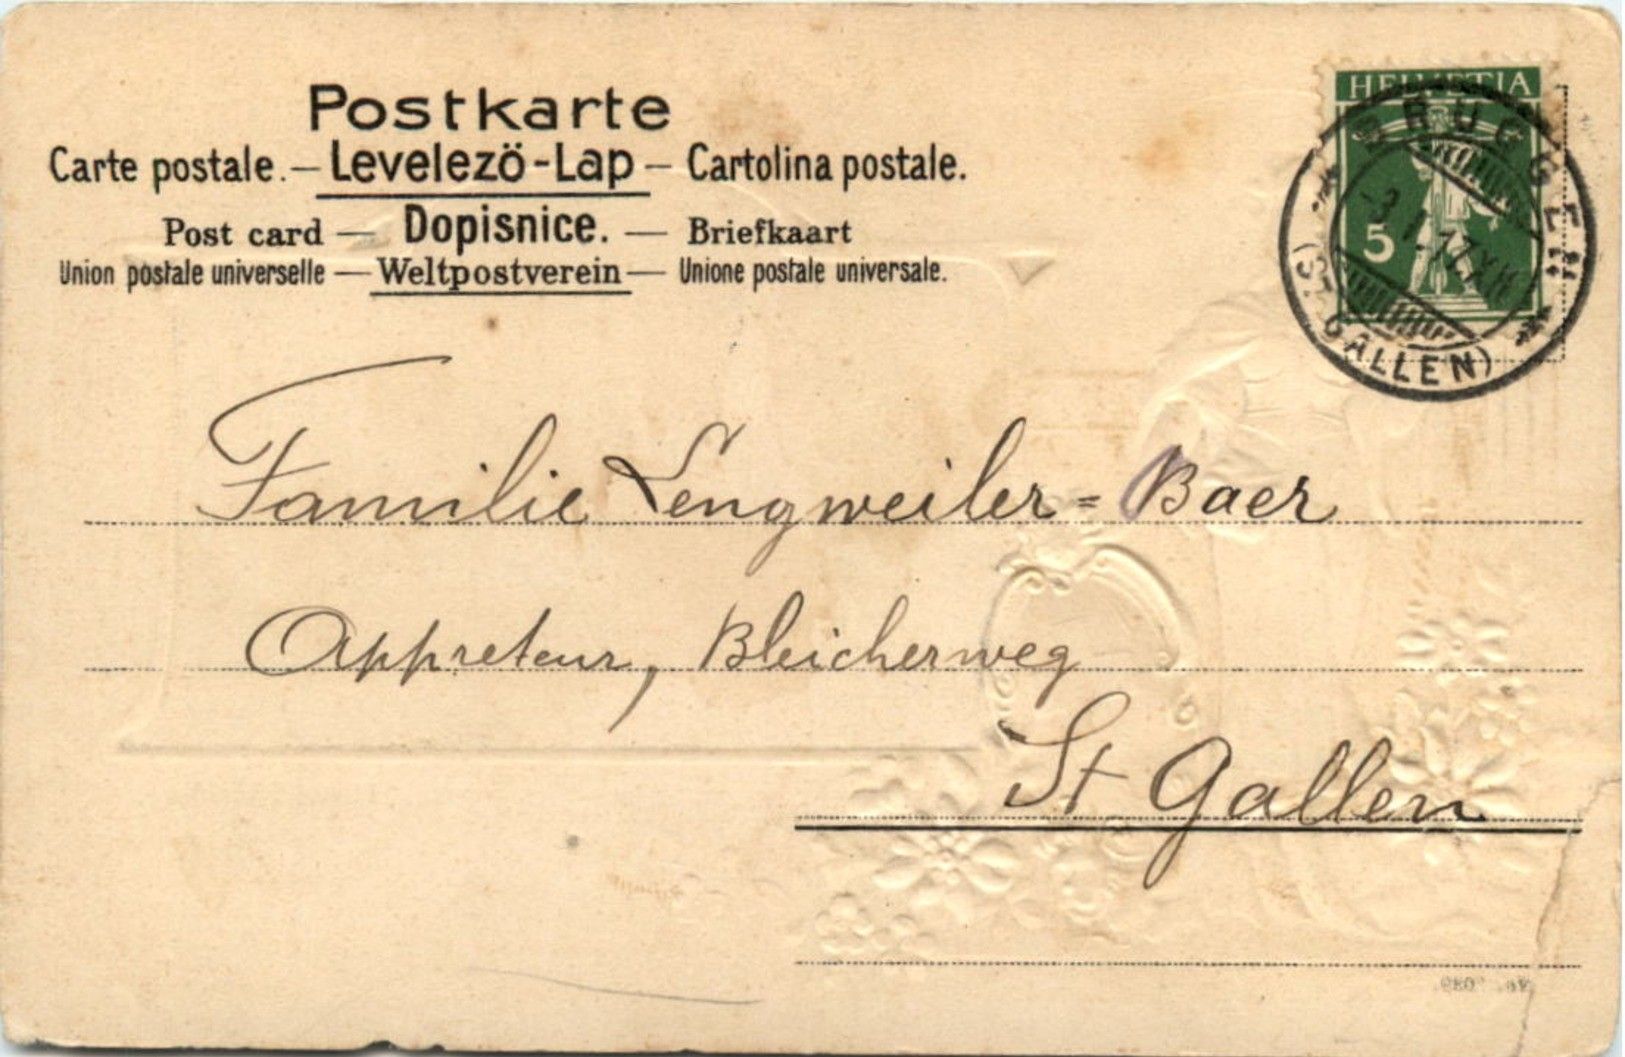 Postkarte
Carte postale. — Levelezö-Lap — Cartolina postale.
Post card — Dopisnice. — Briefkaart
Union postale universelle — Weltpostverein — Unione postale universale.
HELVETIA
5
BRUGGEN
-3.I.17.XII
(ST. GALLEN)
Familie Lengweiler=Baer
Appreteur, Bleicherweg
St Gallen